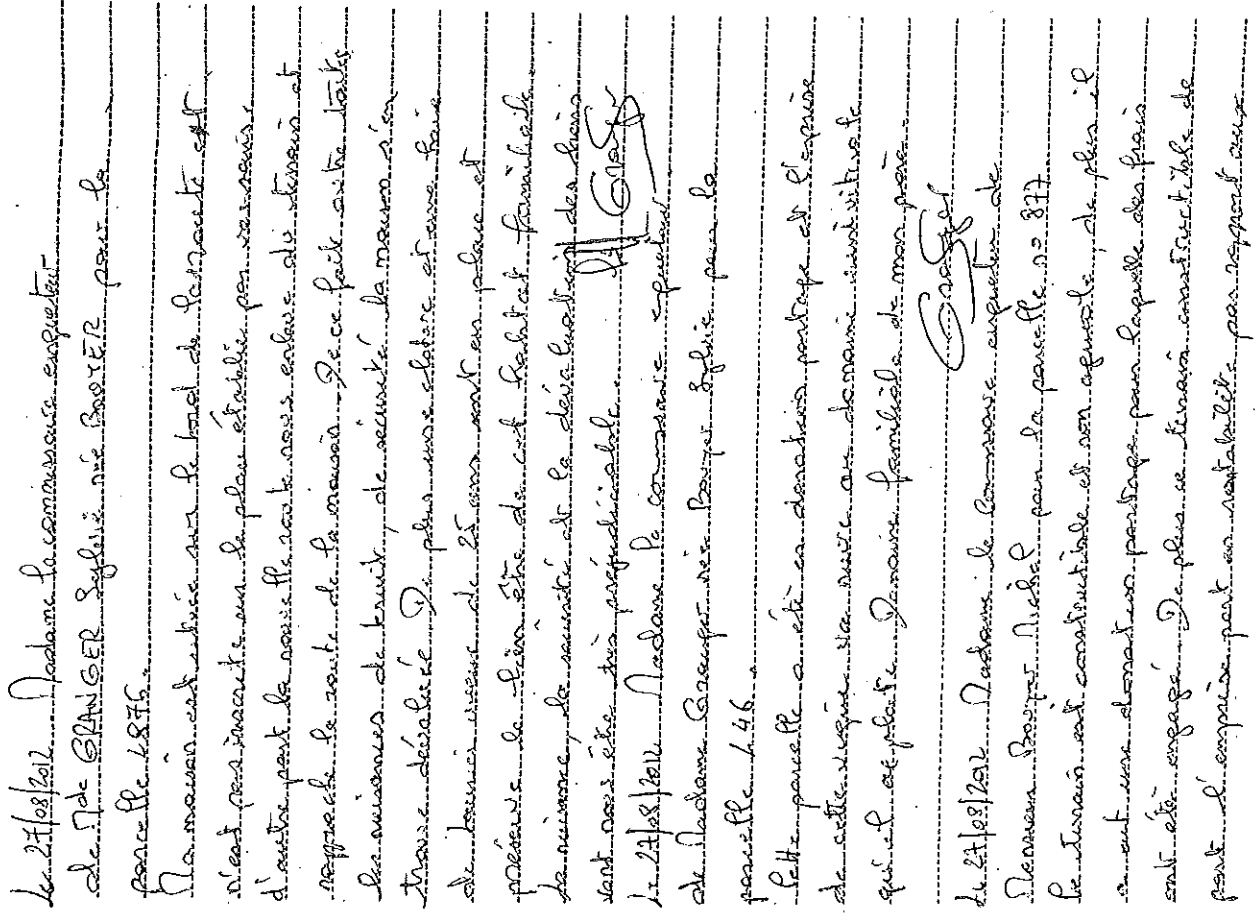 Le 27/08/2012 Madame la commissaire enquêteur
de Mde GRANGER Sylvie née BOYER pour la
parcelle L875.
Ma maison est située sur le bord de la route est
n'est pas inscrite sur le plan établie par vos soins.
d'autre part la nouvelle route nous enlève du terrain et
rapproche la route de la maison. De ce fait outre toutes
les nuisances de bruit, de sécurité la maison s'en
trouve dévaluée. De plus une clôture et une haie
de lauriers vieille de 25 ans sont en place et
préserve le bien être de cet habitat familiale.
Le minime, la sécurité et la dévaluation des biens
vont nous être très préjudiciable.
Le 27/08/2012 Madame la commissaire enquêteur
de Madame Granger née Boyer Sylvie pour la
parcelle L46.
Cette parcelle a été en donation partage et l'emprise
de cette vigne va nuire au domaine viticole
qui l'exploite Domaine familiale de mon père.
Granger
Le 27/08/2012 Madame le Commissaire enquêteur de
Monsieur Boyer Michel pour la parcelle no 877
Le terrain est constructible et non agricole, de plus il
a eut une donation partage pour laquelle des frais
ont été engagé. De plus ce terrain constructible de
part l'emprise perd en rentabilité par rapport aux